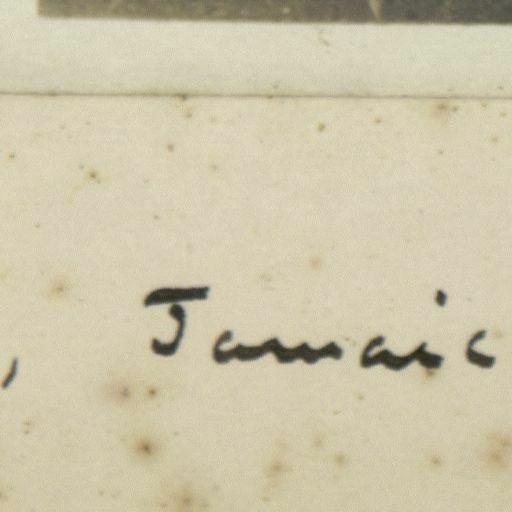 , Jamaic